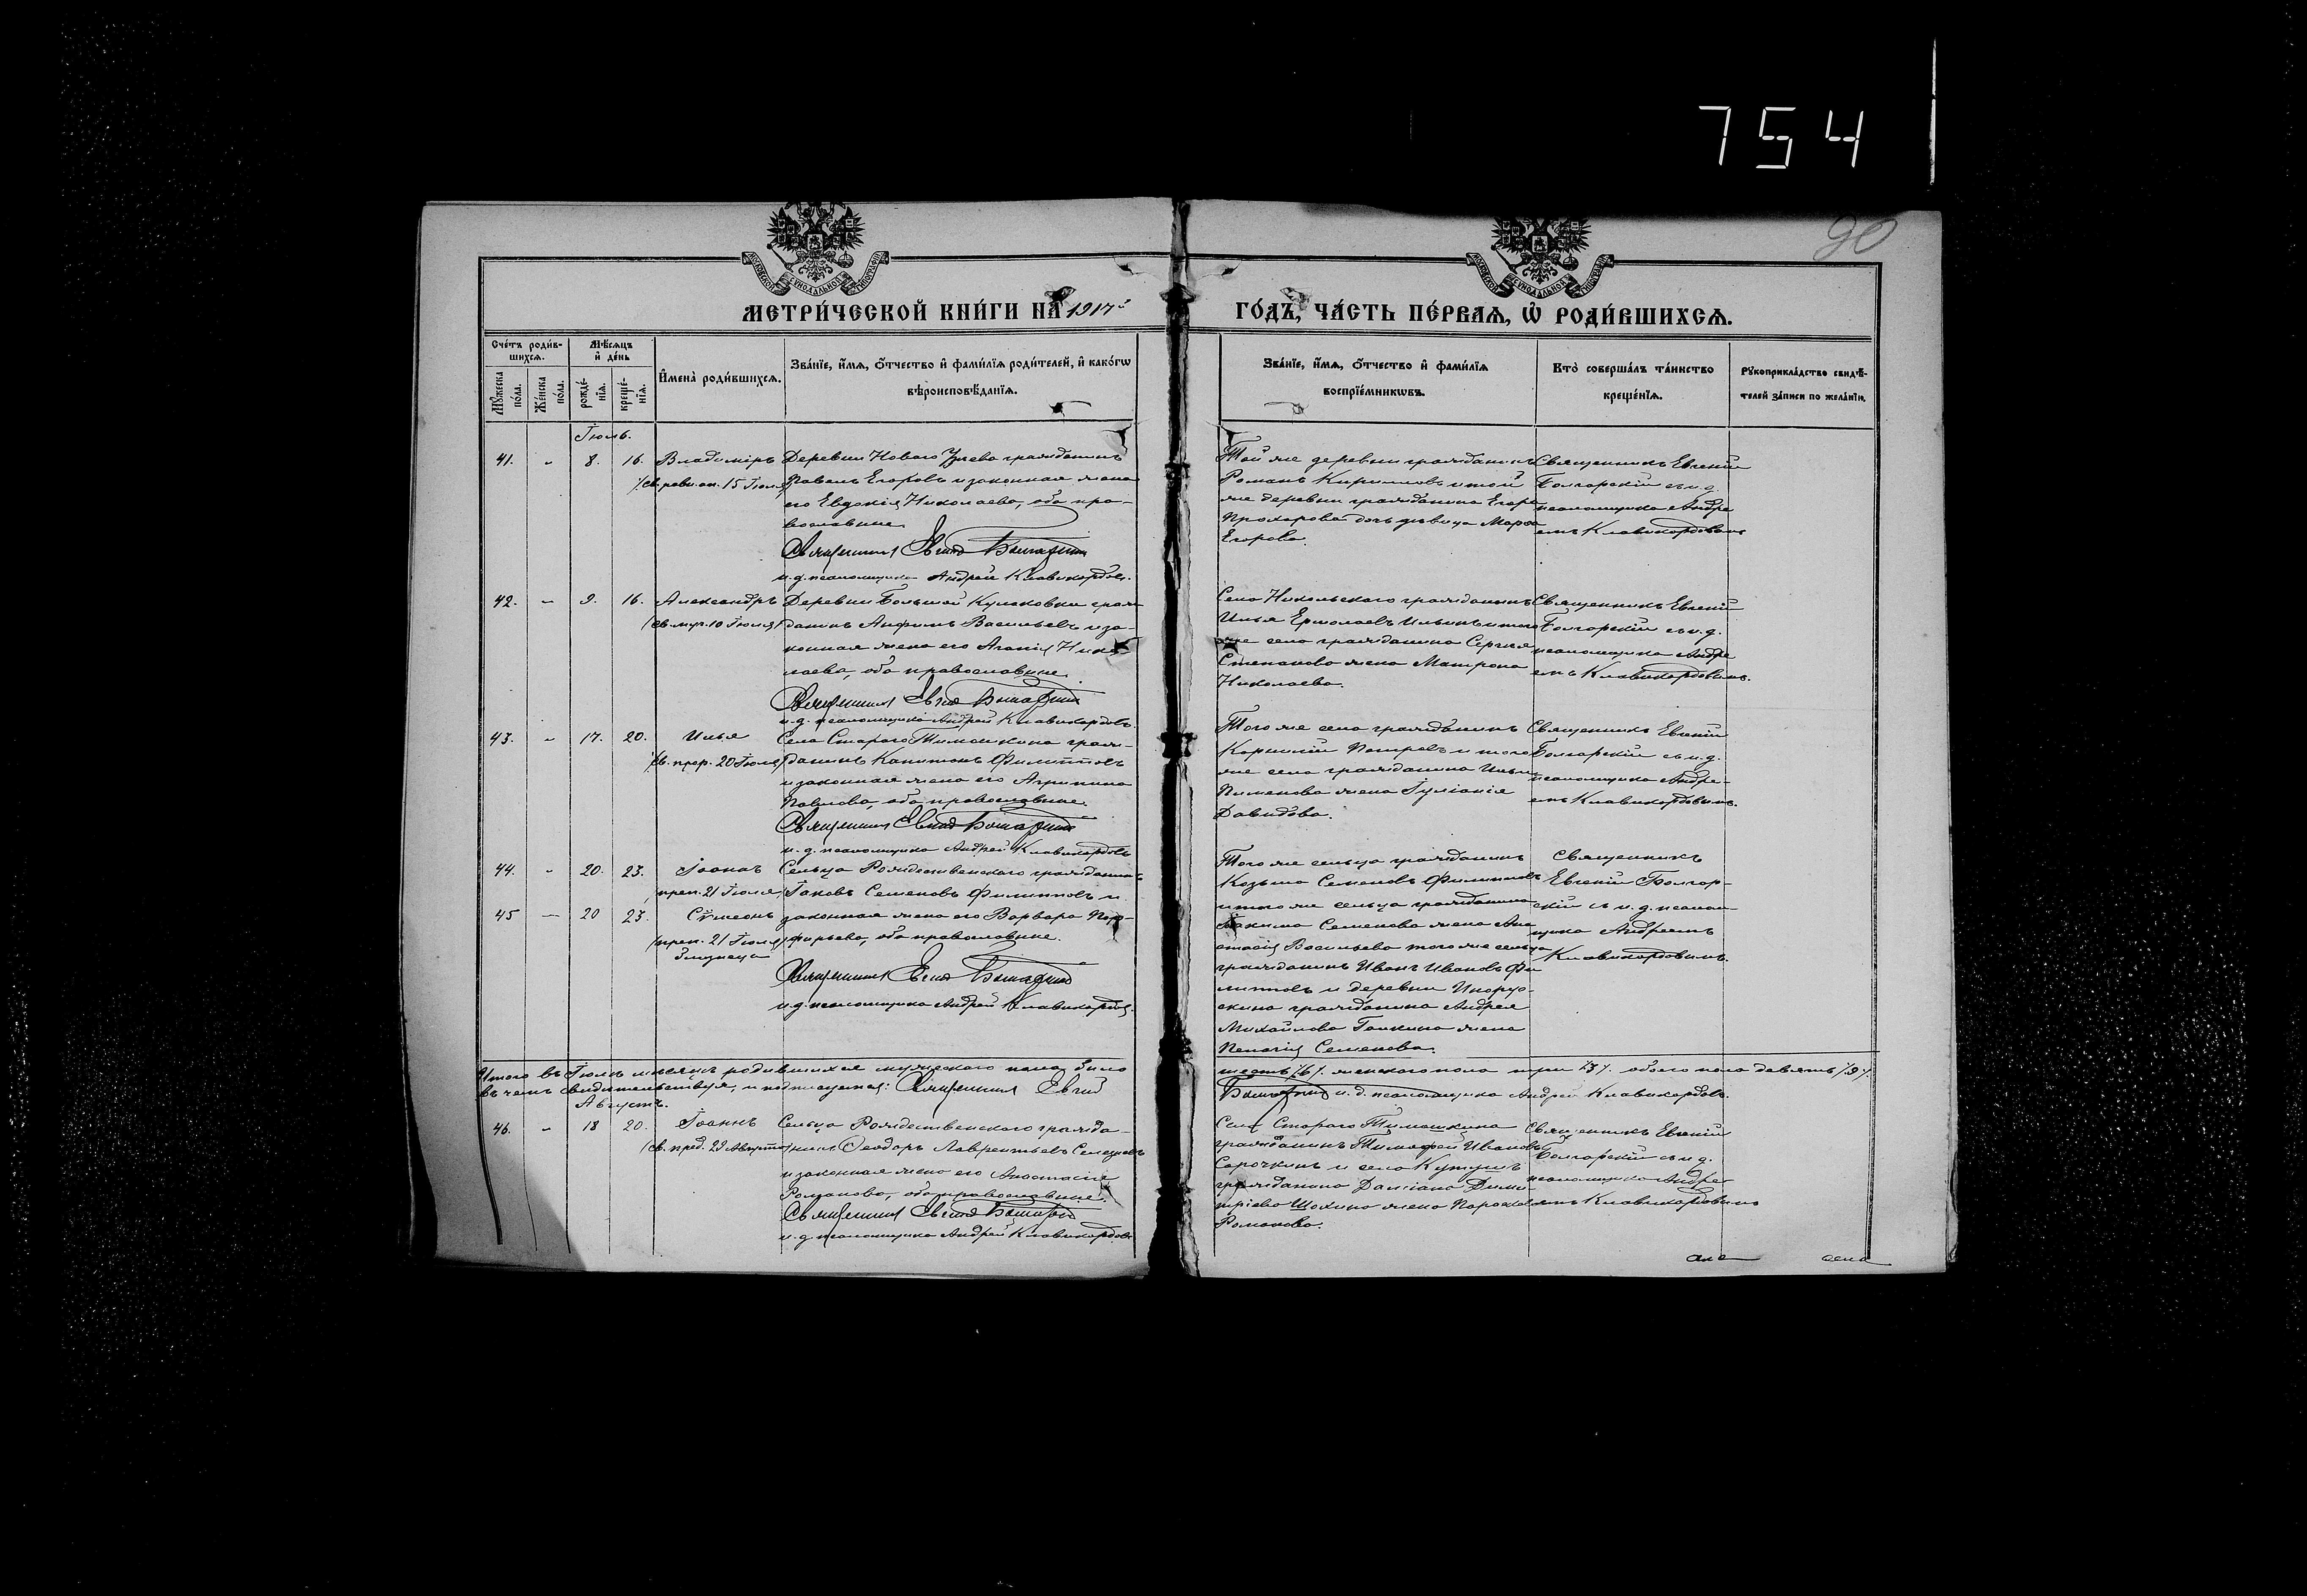 754
90
МОСКОВСКОЙ СѴНОДАЛЬНОЙ ТИПОГРАФІИ
МОСКОВСКОЙ СѴНОДАЛЬНОЙ ТИПОГРАФІИ
МЕТРИ́ЧЕСКОЙ КНИ́ГИ НА 1917й
ГО́ДЪ, ЧА́СТЬ ПЕ́РВАѦ, Ѡ РОДИ́ВШИХСѦ.
Сче́тъ роди́в-
шихсѧ.
Мѣ́сѧцъ
и҆ де́нь
Мꙋ́жеска
по́ла.
Же́нска
по́ла.
рожде́-
нїѧ.
креще́-
нїѧ.
И҆мена̀ роди́вшихсѧ.
Зва́нїе, и҆́мѧ, ѻ҆́тчество и҆ фами́лїѧ роди́телей, и҆ како́гѡ
вѣроисповѣ́данїѧ.
Зва́нїе, и҆́мѧ, ѻ҆́тчество и҆ фами́лїѧ
воспрїе́мникѡвъ.
Кто̀ соверша́лъ та́инство
креще́нїѧ.
Рꙋкоприкла́дство свидѣ́-
телей за́писи по жела́нїю.
Іюль.
41. - 8. 16. Владиміръ
Деревни Новаго гражданинъ
Павелъ Егоровъ и законная жена
его Евдокія Николаева, оба пра-
вославные.
Священникъ Евгеній Болгарскій
и.д. псаломщика Андрей Клавикордовъ.
Той же деревни гражданинъ
Романъ Кирилловъ и той
же деревни гражданина Егора
Прохорова дочь девица Марѳа
Егорова.
Священникъ Евгеній
Болгарскій съ и.д.
псаломщика Андре
емъ Клавикордовымъ
42. - 9. 16. Александръ
(св. муч. 10 Іюля)
Деревни Большой Кулаковки граж-
данинъ Анѳимъ Васильевъ и за-
конная жена его Агапія Нико-
лаева, оба православные.
Священникъ Евгеній Болгарскій
и.д. псаломщика Андрей Клавикордовъ.
Села Никольскаго гражданинъ
Илья Ермолаевъ Ильинъ и того
же села гражданина Сергея
Степанова жена Матрона
Николаева.
Священникъ Евгеній
Болгарскій съ и.д.
псаломщика Андре
емъ Клавикордовымъ.
43. - 17. 20. Илья
(св. прор. 20 Іюля)
Села Стараго Тимошкина граж-
данинъ Капитонъ Филипповъ
и законная жена его Агрипина
Павлова, оба православные.
Священникъ Евгеній Болгарскій
и.д. псаломщика Андрей Клавикордовъ
Того же села гражданинъ
Корнилій Петровъ и того
же села гражданина Ильи
Пименова жена Іуліанія
Давидова.
Священникъ Евгеній
Болгарскій съ и.д.
псаломщика Андре-
емъ Клавикордовымъ.
44. - 20. 23. Іоаннъ
преп. 21 Іюля
45 - 20 23. Сѵмеонъ
(преп. 21 Іюля)
близнецы
Сельца Рождественскаго гражданинъ
Іаковъ Семеновъ Филипповъ и
законная жена его Варвара Пор-
фирьева, оба православные.
Священникъ Евгеній Болгарскій
и.д. псаломщика Андрей Клавикордовъ.
Того же сельца гражданинъ
Козьма Семеновъ Филипповъ
и того же сельца гражданина
Іакима Семенова жена Ана
стасія Васильева того же сельца
гражданинъ Иванъ Ивановъ Фи
липповъ и деревни
гражданина Андрея
Михайлова Галкина жена
Пелагія Семенова.
Священникъ
Евгеній Болгар-
скій съ и.д. псалом-
щика Андреемъ
Клавикордовымъ.
Итого въ Іюлѣ мѣсяцѣ родившихся мужескаго пола было
шесть /6/. женскаго пола три /3/. обоего пола девять /9/.
въ чемъ свидетельствуя, и подписуемся: Священникъ Евгеній
Болгарскій и.д. псаломщика Андрей Клавикордовъ.
Августъ.
46. - 18 20. Іоаннъ
(св. пред. 29 Августа)
Сельца Рождественскаго гражда-
нинъ Ѳеодоръ Лаврентьевъ Селезневъ
и законная жена его Анастасія
Романова, оба православные.
Священникъ Евгеній Болгарскій
и.д. псаломщика Андрей Клавикордовъ
Села Стараго Тимошкина
гражданинъ Тимофей Ивановъ
Сорочкинъ и села
гражданина Даміана Дими-
тріева Шохина жена
Романова.
Священникъ Евгеній
Болгарскій съ и.д.
псаломщика Андре
емъ Клавикордовымъ